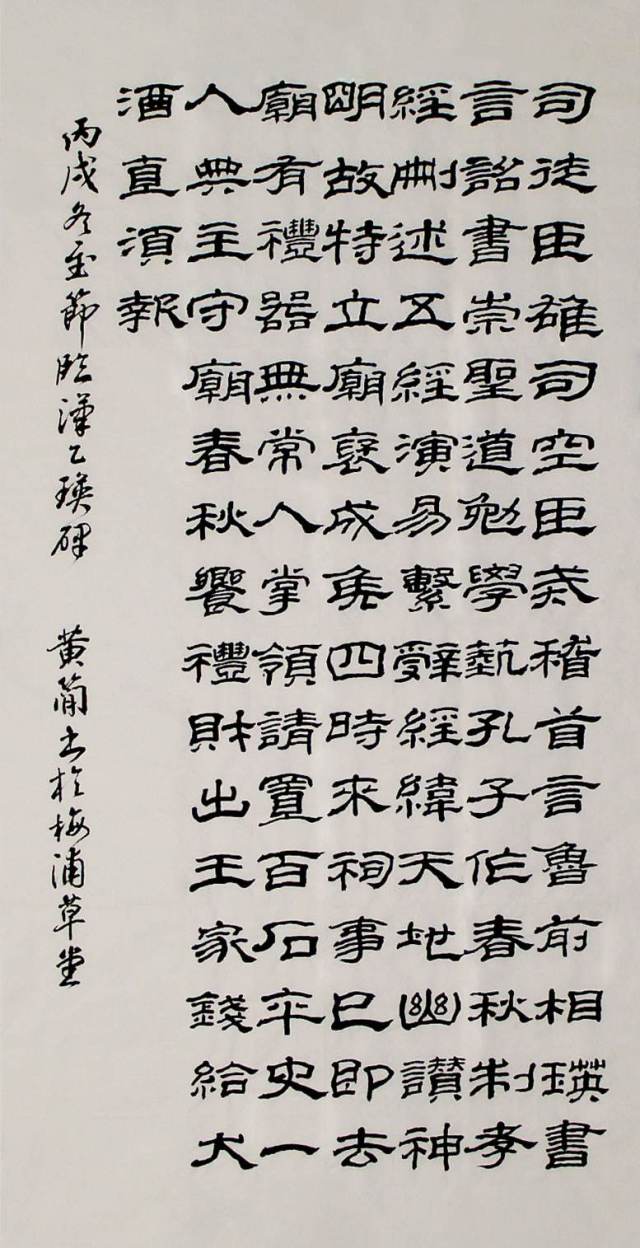 司徒臣雄司空臣戒稽首言魯前相瑛書
言詔書崇聖道勉學藝孔子作春秋制孝
經刪述五經演易繫辭經緯天地幽讚神
明故特立廟褒成侯四時來祠事已即去
廟有禮器無常人掌領請置百石卒史一
人典主守廟春秋饗禮財出王家錢給犬
酒直須報
丙戌冬至節臨漢乙瑛碑 黄蘭書於梅浦草堂